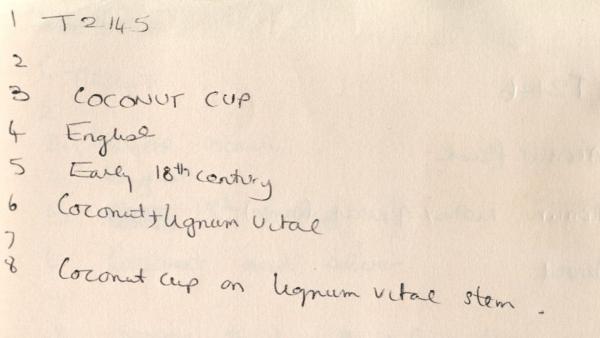 1 T2145
2
3 COCONUT CUP
4 English
5 Early 18th century
6 Coconut + lignum vitae
7
8 Coconut cup on lignum vitae stem.